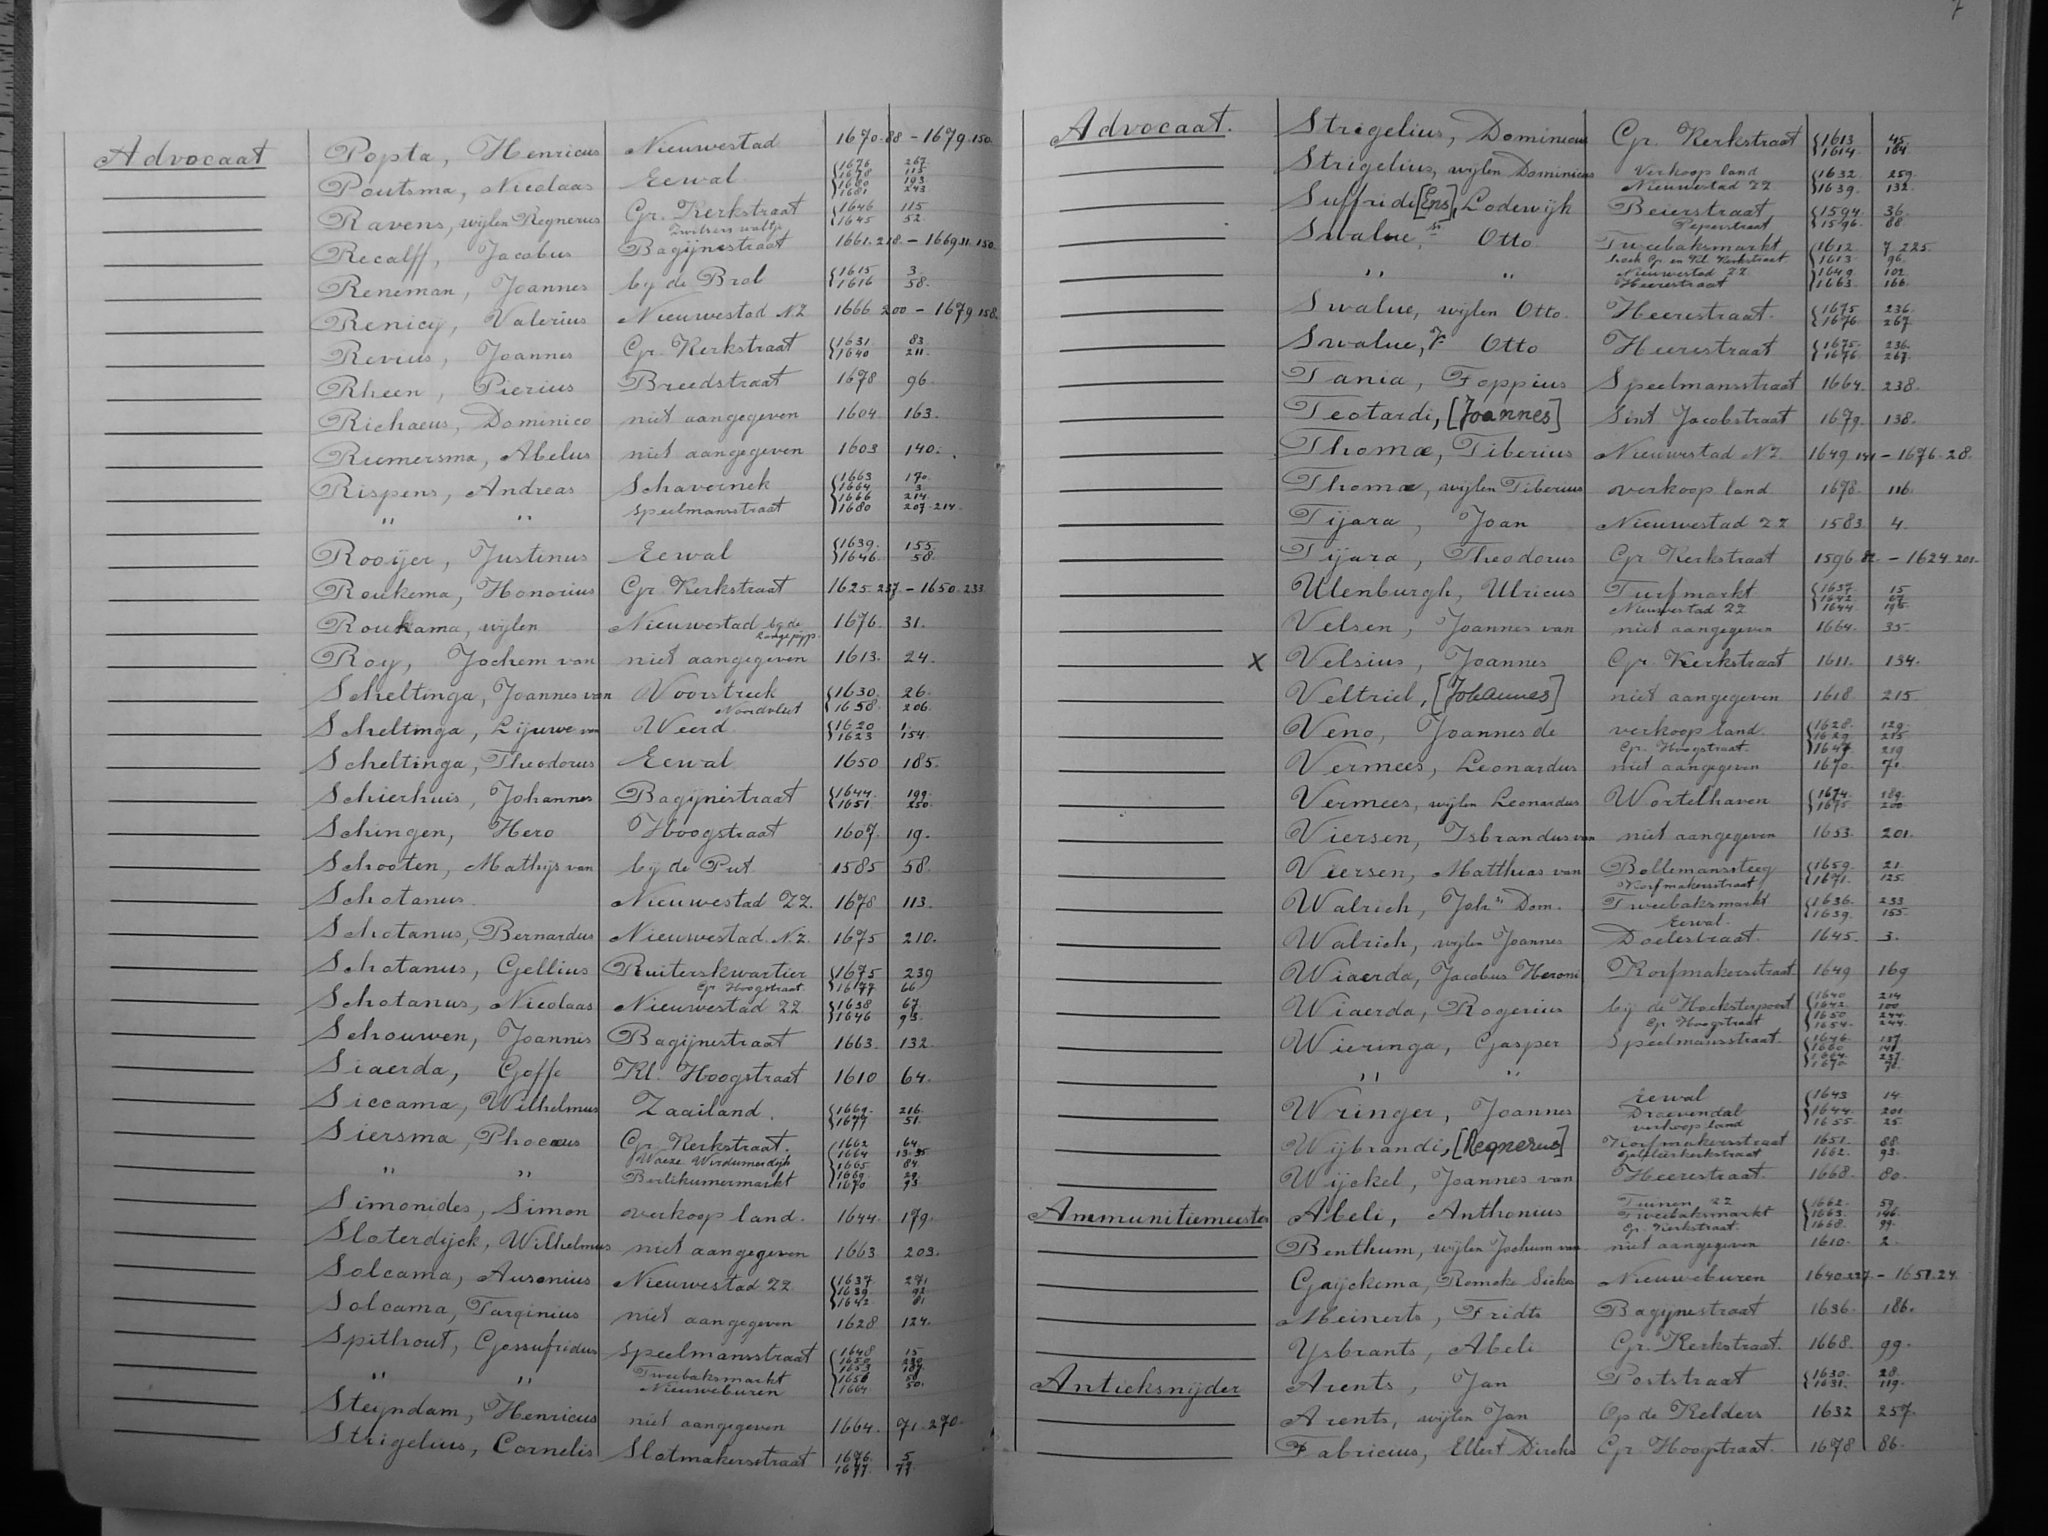 7
Advocaat Popta, Henricus Nieuwestad 1670.88 - 1679.150.
Poutsma, Nicolaas Eewal 1676. 267. 1678 115 1680 193 1681 243
Ravens, wijlen Regnerus Gr. Kerkstraat 1646 115 1645 52.
Zwitsers waltje
Recalff, Jacobus Bagijnestraat 1661.218. - 1669.11.150.
Reneman, Joannes bij de Brol 1615 3. 1616 58.
Renicy, Valerius Nieuwestad N.Z. 1666 200 - 1679 158.
Revius, Joannes Gr. Kerkstraat 1631. 83 1640 211.
Rheen, Pierius Breedstraat 1678 96.
Richaeus, Dominico niet aangegeven 1604. 163.
Riemersma, Abelus niet aangegeven 1603 140.
Rispens, Andreas Schavernek 1663 170. 1664 3. 1666 214
" " Speelmansstraat 1680 207.214.
Rooijer, Justinus Eewal 1639. 155 1646. 58.
Roukema, Honorius Gr. Kerkstraat 1625.237 - 1650.233
Roukama, wijlen Nieuwestad bij de Lange pijp 1676. 31.
Roy, Jochem van niet aangegeven 1613. 24.
Scheltinga, Joannes van Voorstreek 1630. 26.
Noordvliet 1658. 206.
Scheltinga, Lijuwe van Weerd 1620 1. 1623 154.
Scheltinga, Theodorus Eewal 1650 185.
Schierhuis, Johannes Bagijnestraat 1644. 199. 1651. 250.
Schingen, Hero Hoogstraat 1607. 19.
Schooten, Mathijs van bij de Put 1585 58.
Schotanus Nieuwestad ZZ. 1678 113.
Schotanus, Bernardus Nieuwestad N.Z. 1675 210.
Schotanus, Gellius Ruiterskwartier 1675 239
Gr. Hoogstraat 1677 66
Schotanus, Nicolaas Nieuwestad ZZ 1638 67. 1646 93.
Schouwen, Joannis Bagijnestraat 1663. 132.
Siaerda, Goffe Kl. Hoogstraat 1610 64.
Siccama, Wilhelmus Zaailand. 1669. 216. 1677 51.
Siersma, Phocaeus Gr. Kerkstraat. 1662 64. 1664 13.35
Waeze Wirdumerdijk 1665 84.
" " Berlikumermarkt 1669. 29. 1670 93
Simonides, Simon verkoop land. 1644. 179.
Sloterdijck, Wilhelmus niet aangegeven 1663 203.
Solcama, Ausonius Nieuwestad ZZ. 1637. 271 1639. 92 1642 81
Solcama, Tarqinius niet aangegeven 1628 124.
Spithout, Gossufridus Speelmansstraat 1648 15 1650 230 1653 187.
" " Tweebaksmarkt
Nieuweburen 1664 50.
Steijndam, Henricus niet aangegeven 1664. 71.270.
Strigelius, Cornelis Slotmakersstraat 1676. 5 1677. 77
Advocaat. Strigelius, Dominicus Gr. Kerkstraat 1613 45. 1614. 164.
Strigelius, wijlen Dominicus Verkoop land 1632. 259.
Nieuwestad ZZ 1639. 132.
Suffridi [Ens], Lodewijk Beierstraat 1594. 36.
Peperstraat 1596. 88.
Swalue, Sr Otto Tweebaksmarkt 1612 7.225.
hoek Gr. en Kl. Kerkstraat 1613. 96.
" " Nieuwestad ZZ 1649. 102
Heerestraat 1663. 166.
Swalue, wijlen Otto. Heerestraat. 1675 236. 1676. 267
Swalue, Jr Otto Heerestraat 1675. 236. 1676. 267.
Tania, Foppius Speelmansstraat 1664. 238.
Teotardi, [Joannes] Sint Jacobstraat 1679. 138.
Thomæ, Tiberius Nieuwestad N.Z. 1649 141 - 1676.28.
Thomæ, wijlen Tiberius verkoop land 1678. 116.
Tijara, Joan Nieuwestad ZZ 1583. 4.
Tijara, Theodorus Gr. Kerkstraat 1596.82. - 1624.201.
Ulenburgh, Ulricus Turfmarkt 1637. 15 1642. 67
Nieuwestad ZZ 1644. 195.
Velsen, Joannes van niet aangegeven 1664. 35.
X Velsius, Joannes Gr. Kerkstraat 1611. 134.
Veltriel, [Johannes] niet aangegeven 1618 215.
Veno, Joannes de verkoop land. 1628. 129. 1629. 215.
Gr. Hoogstraat. 1647. 219
Vermees, Leonardus niet aangegeven 1670. 71
Vermees, wijlen Leonardus Wortelhaven 1674. 189. 1675 200.
Viersen, Isbrandus van niet aangegeven 1653. 201.
Viersen, Matthias van Bollemanssteeg 1659. 21.
Korfmakersstraat 1671. 125.
Walrich, Johs Dom. Tweebaksmarkt 1636. 233
Eewal. 1639. 155
Walrich, wijlen Joannes Doelestraat. 1645. 3.
Wiaerda, Jacobus Heroni Korfmakersstraat 1649 169
Wiaerda, Rogerius bij de Hoeksterpoort 1640 214 1642. 100.
Gr. Hoogstraat 1650 244. 1654. 244.
Wieringa, Gasper Speelmansstraat. 1646. 137 1660 141 1664. 237.
" " 1670 71.
Wringer, Joannes Eewal 1643 14
Draevendal 1644. 201
verkoop land 1655. 25.
Wijbrandi, [Regnerus] Korfmakersstraat 1651. 88.
Galileërkerkstraat 1662. 93.
Wijckel, Joannes van Heerestraat. 1668. 80.
Ammunitiemeester Abeli, Anthonius Tuinen ZZ 1662. 59.
Tweebaksmarkt 1663. 146.
Gr. Kerkstraat. 1668. 99.
Benthum, wijlen Jochum van niet aangegeven 1610. 2.
Gaijckema, Romeke Sickes Nieuweburen 1640.227 - 1651.24.
Meinerts, Fridts Bagijnestraat 1636. 186.
Ysbrants, Abeli Gr. Kerkstraat. 1668. 99.
Antieksnijder Arents, Jan Poststraat 1630. 28. 1631. 119.
Arents, wijlen Jan Op de Kelders 1632 257.
Fabricius, Ellert Dircks Gr. Hoogstraat. 1678 86.